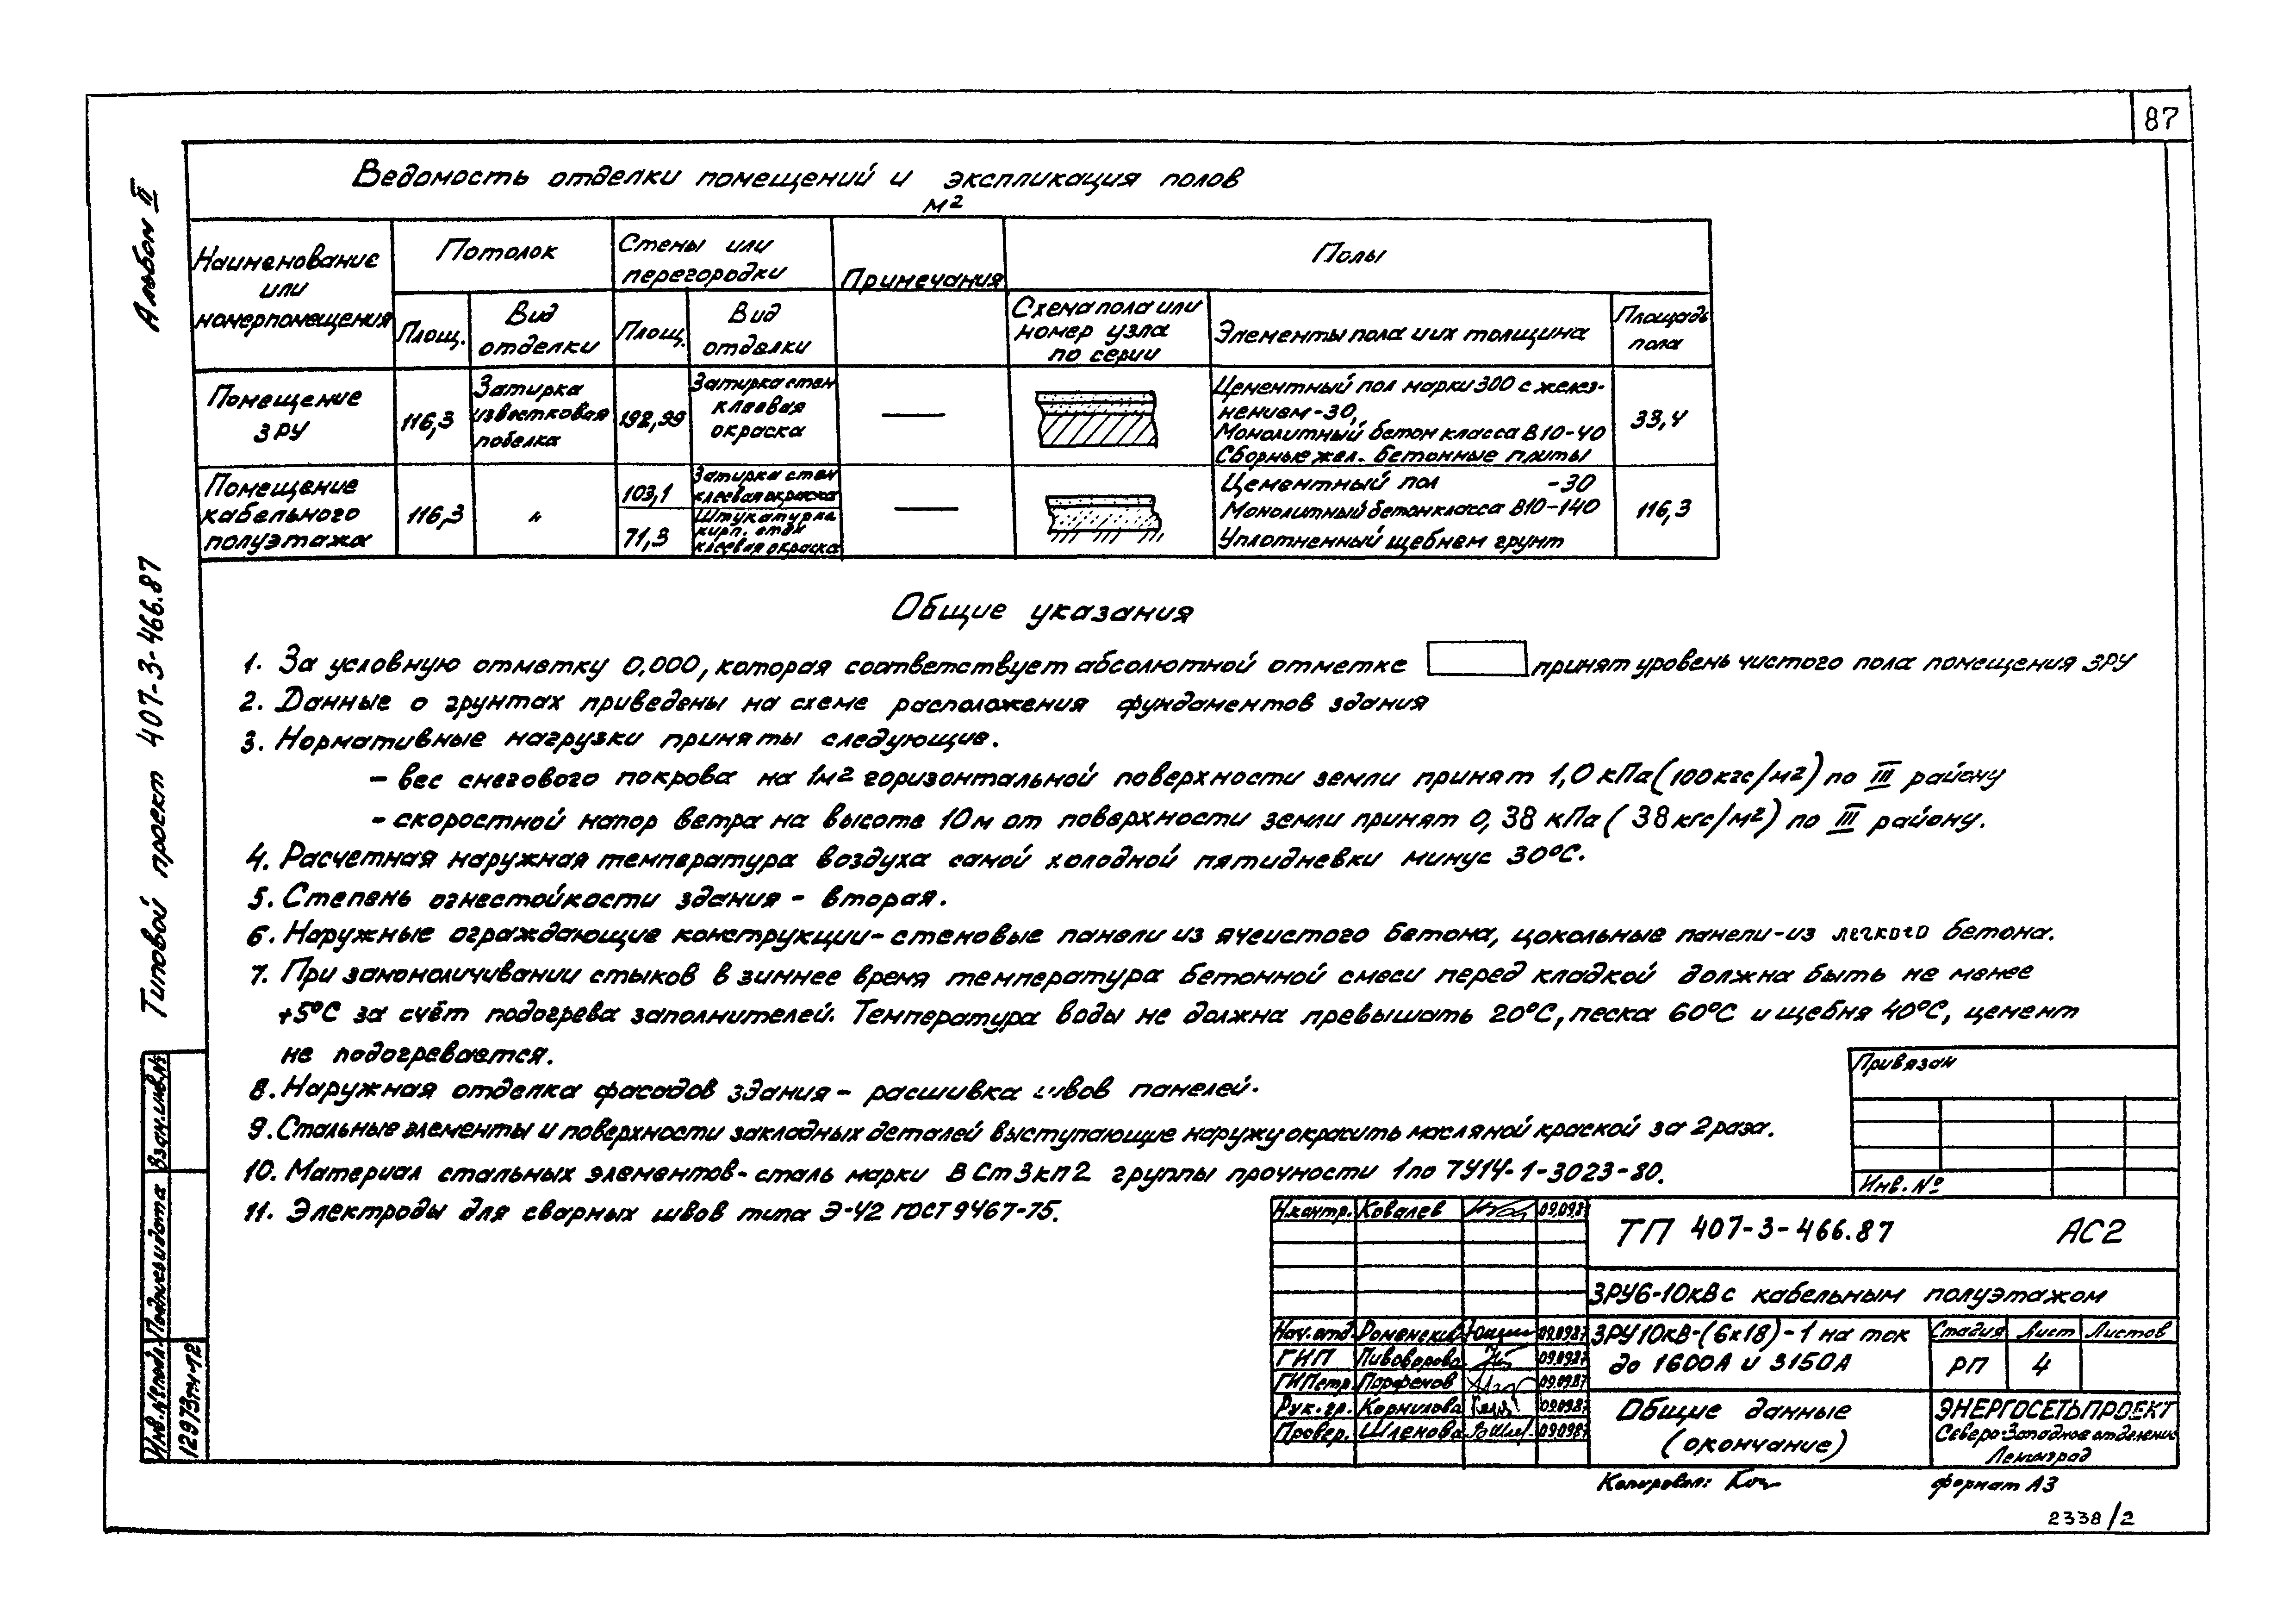 87
Альбом II
Типовой проект 407-3-466.87
Ведомость отделки помещений и экспликация полов
м²
Наименование
или
номер помещения
Потолок
Стены или
перегородки
Примечания
Полы
Площ.
Вид
отделки
Площ.
Вид
отделки
Схема пола или
номер узла
по серии
Элементы пола и их толщина
Площадь
пола
Помещение
ЗРУ
116,3
Затирка
известковая
побелка
192,99
Затирка стен
клеевая
окраска
—
Цементный пол марки 300 с желез-
нением-30,
Монолитный бетон класса В10-40
Сборные жел. бетонные плиты
33,4
Помещение
кабельного
полуэтажа
116,3
"
103,1
Затирка стен
клеевая окраска
71,3
Штукатурка
кирп. стен
клеевая окраска
—
Цементный пол -30
Монолитный бетон класса В10-140
Уплотненный щебнем грунт
116,3
Общие указания
1. За условную отметку 0,000, которая соответствует абсолютной отметке принят уровень чистого пола помещения ЗРУ
2. Данные о грунтах приведены на схеме расположения фундаментов здания
3. Нормативные нагрузки приняты следующие.
- вес снегового покрова на 1м² горизонтальной поверхности земли принят 1,0 кПа (100кгс/м²) по III району
- скоростной напор ветра на высоте 10м от поверхности земли принят 0,38 кПа (38кгс/м²) по III району.
4. Расчетная наружная температура воздуха самой холодной пятидневки минус 30°С.
5. Степень огнестойкости здания - вторая.
6. Наружные ограждающие конструкции - стеновые панели из ячеистого бетона, цокольные панели - из легкого бетона.
7. При замоноличивании стыков в зимнее время температура бетонной смеси перед кладкой должна быть не менее
+5°С за счёт подогрева заполнителей. Температура воды не должна превышать 20°С, песка 60°С и щебня 40°С, цемент
не подогревается.
8. Наружная отделка фасадов здания - расшивка швов панелей.
9. Стальные элементы и поверхности закладных деталей выступающие наружу окрасить масляной краской за 2 раза.
10. Материал стальных элементов - сталь марки ВСт3кп2 группы прочности 1 по ТУ14-1-3023-80.
11. Электроды для сварных швов типа Э-42 ГОСТ 9467-75.
Привязан
Инв. №
Н.контр. Ковалев 09.09.87
Нач. отд. Роменский 09.09.87
ГИП Пивоварова 09.09.87
ГИПстр. Парфенов 09.09.87
Рук. гр. Корнилова 09.09.87
Провер. Шленова 09.09.87
ТП 407-3-466.87 АС2
ЗРУ6-10кВ с кабельным полуэтажом
ЗРУ10кВ-(6х18)-1 на ток
до 1600А и 3150А
Стадия Лист Листов
РП 4
Общие данные
(окончание)
ЭНЕРГОСЕТЬПРОЕКТ
Северо-Западное отделение
Ленинград
Копировал:
формат А3
2338/2
Взам.инв.№
Подпись и дата
Инв. № подл.
12973тм-т2